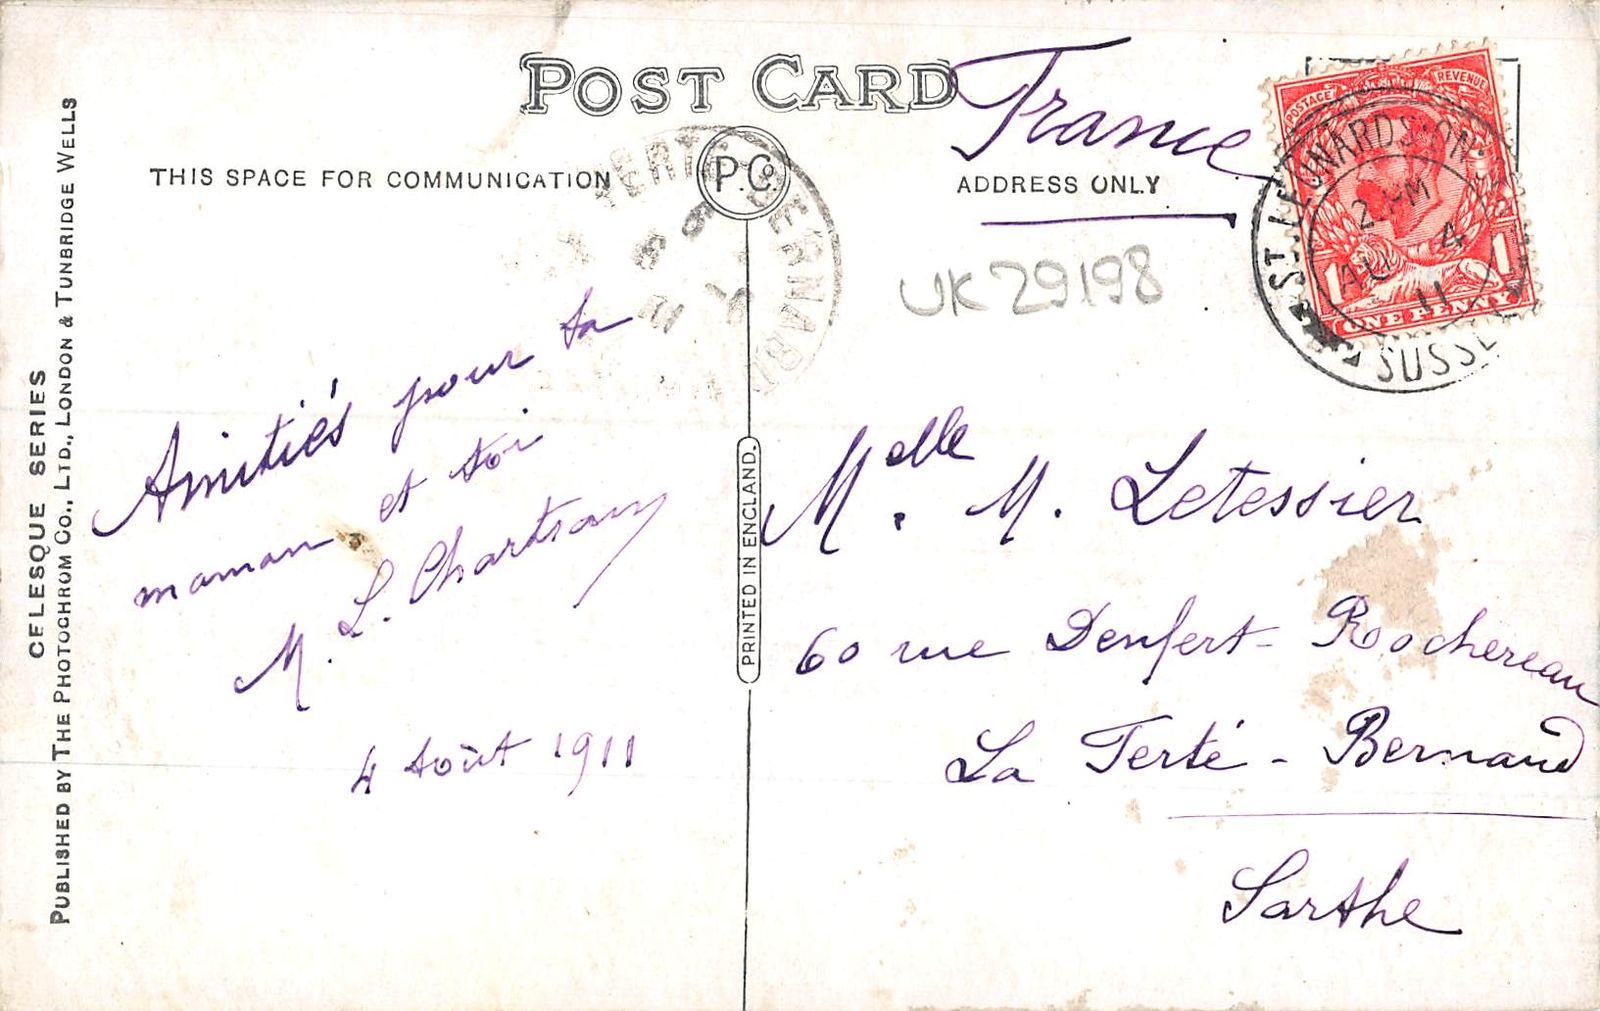 POST CARD
France
THIS SPACE FOR COMMUNICATION
P.Co.
ADDRESS ONLY
UK 29198
POSTAGE REVENUE
1 1
ONE PENNY
ST. LEONARDS-ON-
2 PM
AU 4
11
SUSSE
BERNARD
Amitiés pour ta
maman et toi
M. L.
4 Août 1911
Melle. M. Letessier
60 rue Denfert-Rochereau
La Ferté-Bernard
Sarthe
PRINTED IN ENGLAND.
CELESQUE SERIES
PUBLISHED BY THE PHOTOCHROM CO., LTD., LONDON & TUNBRIDGE WELLS